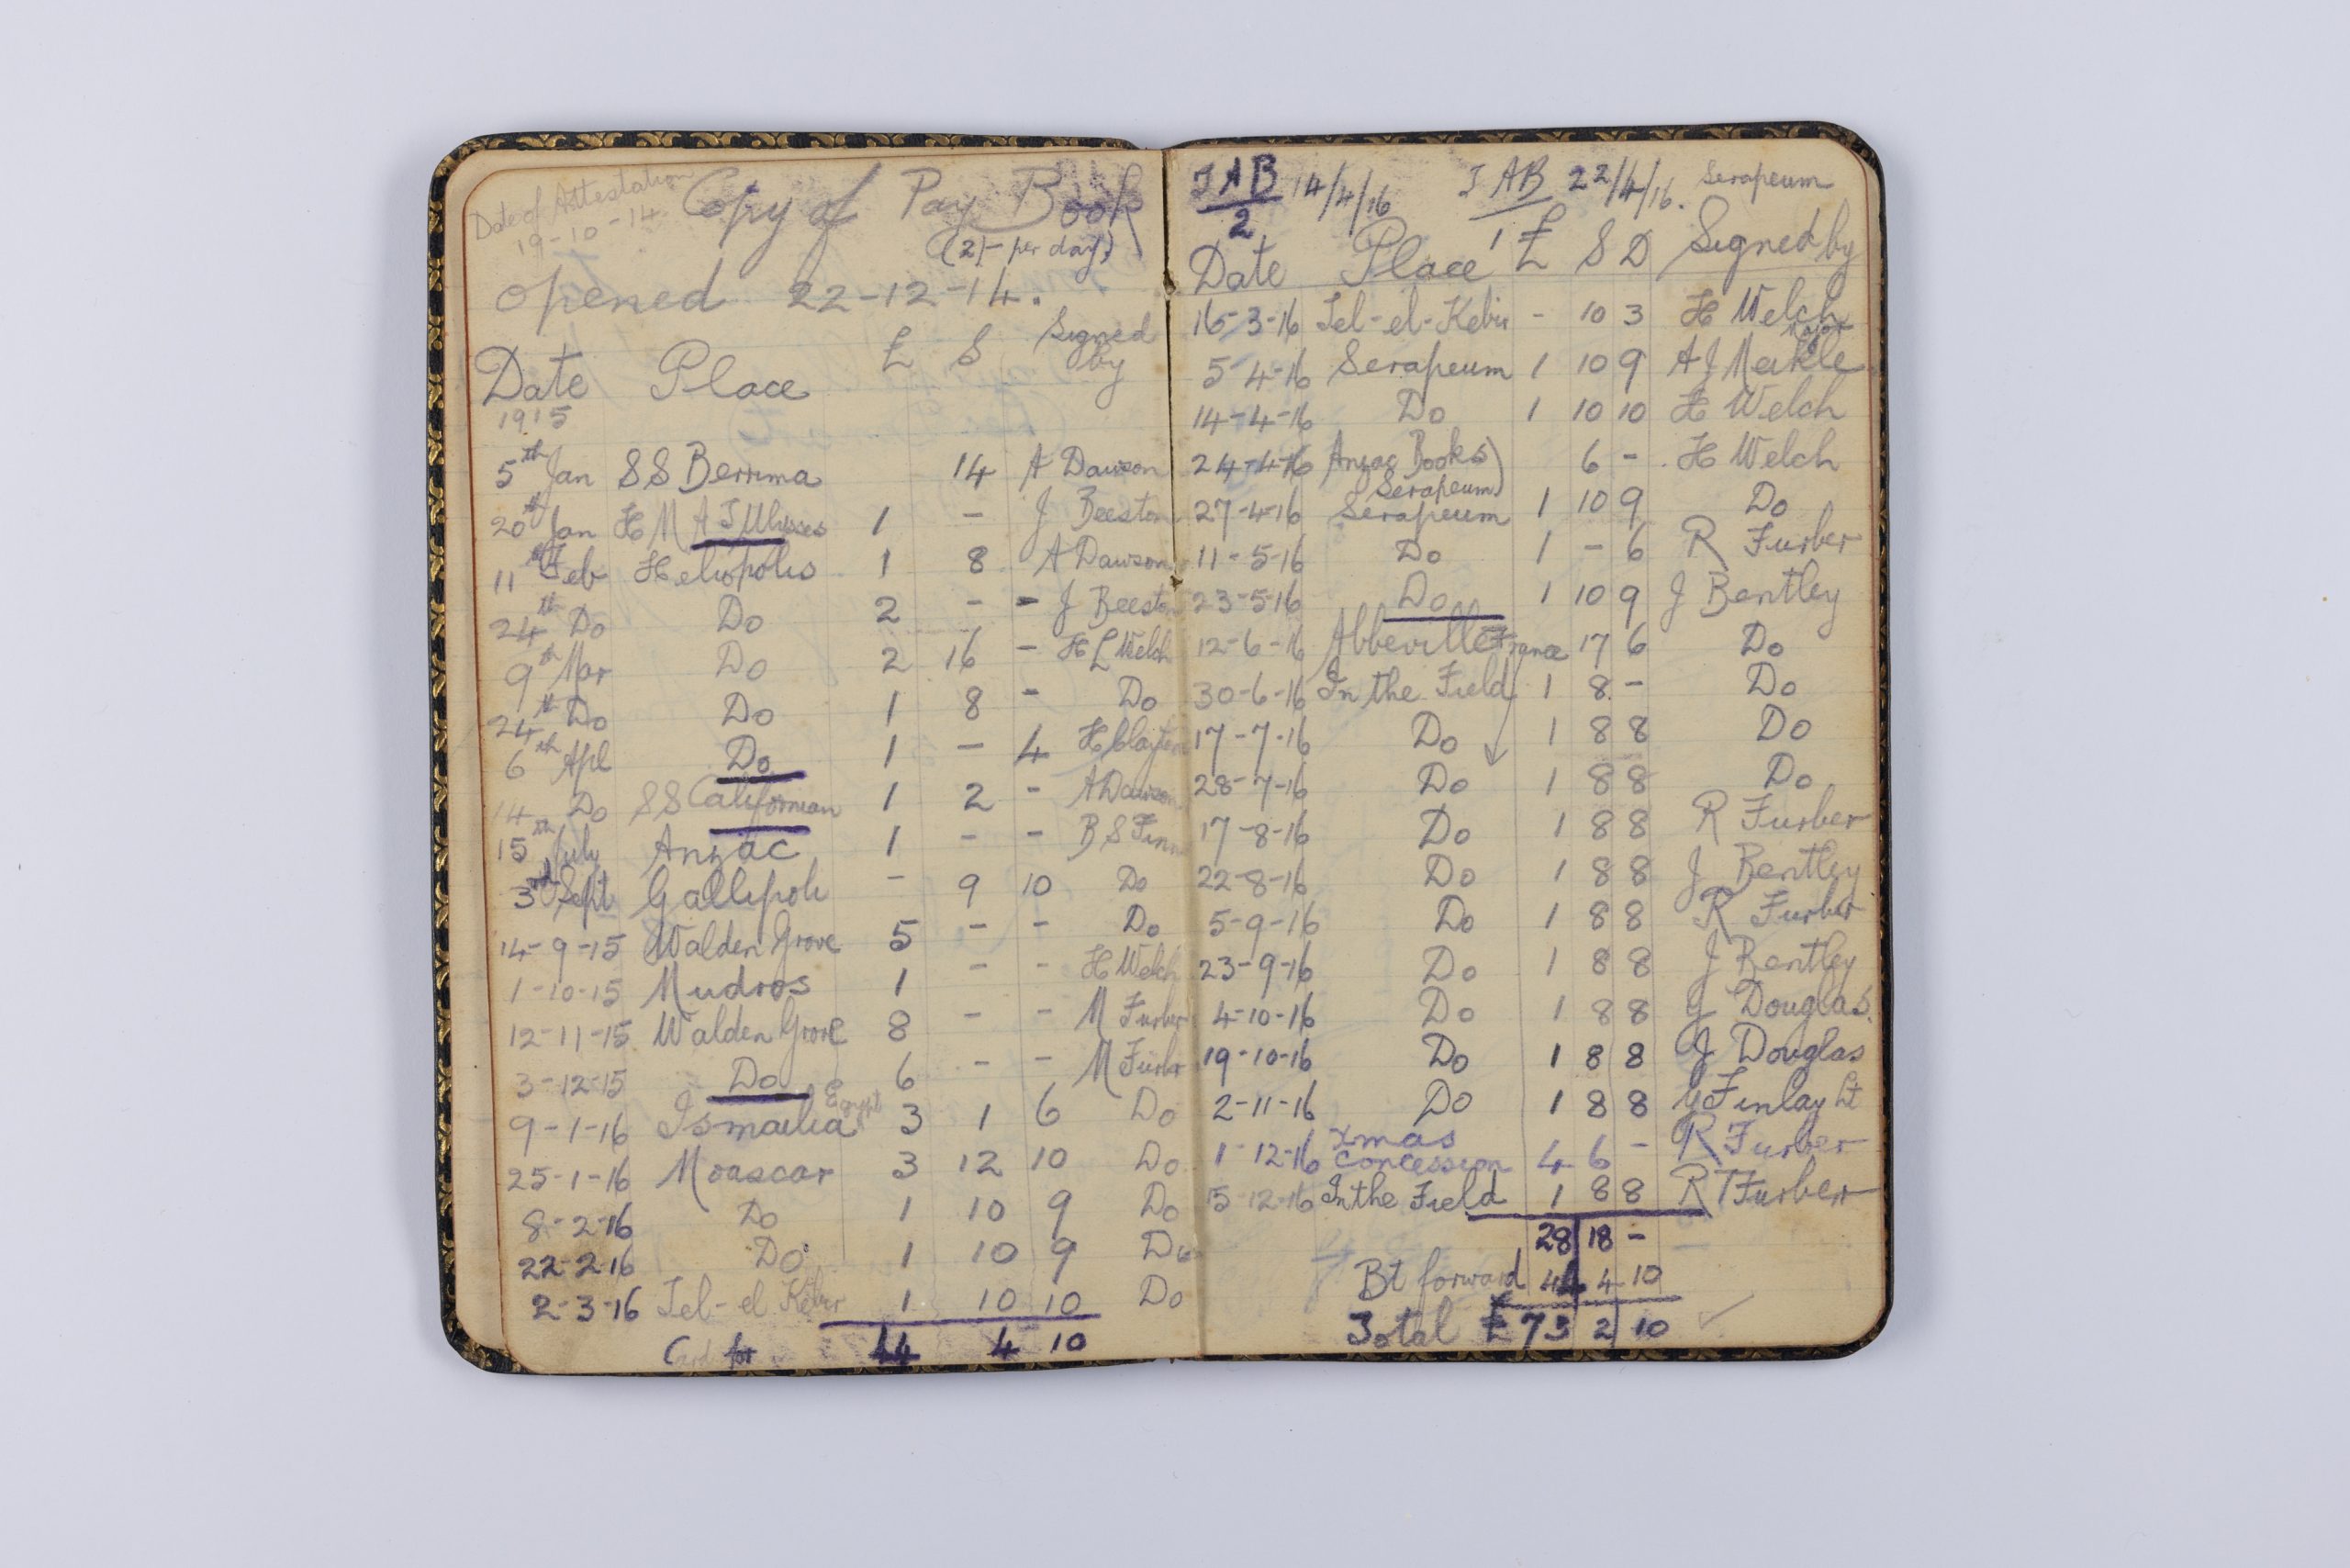 Date of Attestation
19-10-14
Copy of Pay Book
(2/- per day)
opened 22-12-14.
Date Place £ S Signed by
1915
5th Jan SS Berrima 14 A Dawson
20th Jan H M A T Ulysses 1 - J Beeston
11th Feb Heliopolis 1 8 A Dawson
24th Do Do 2 - - J Beeston
9th Mar Do 2 16 - H L Welch
24th Do Do 1 8 - Do
6th Apl Do 1 - 4 H Clayton
14th Do SS Californian 1 2 - A Dawson
15th July Anzac 1 - - B S Finn
3rd Sept Gallipoli - 9 10 Do
14-9-15 Walden Grove 5 - - Do
1-10-15 Mudros 1 - - H Welch
12-11-15 Walden Grove 8 - - M Furber
3-12-15 Do 6 - - M Furber
9-1-16 Ismailia Egypt 3 1 6 Do
25-1-16 Moascar 3 12 10 Do
8-2-16 Do 1 10 9 Do
22-2-16 Do 1 10 9 Do
2-3-16 Tel-el Kebir 1 10 10 Do
Card for 44 4 10
T A B 14/4/16 T AB 22/4/16. Serapeum
2 1
Date Place £ S D Signed by
16-3-16 Tel-el-Kebir - 10 3 H Welch
5-4-16 Serapeum 1 10 9 A J Meikle Major
14-4-16 Do 1 10 10 H Welch
24-4-16 Anzac Books) 6 - H Welch
Serapeum)
27-4-16 Serapeum 1 10 9 Do
11-5-16 Do 1 - 6 R Furber
23-5-16 Do 1 10 9 J Bentley
12-6-16 Abbeville France 17 6 Do
30-6-16 In the Field 1 8 - Do
17-7-16 Do 1 8 8 Do
28-7-16 Do 1 8 8 Do
17-8-16 Do 1 8 8 R Furber
22-8-16 Do 1 8 8 J Bentley
5-9-16 Do 1 8 8 R Furber
23-9-16 Do 1 8 8 J Bentley
4-10-16 Do 1 8 8 J Douglas.
19-10-16 Do 1 8 8 J Douglas
2-11-16 Do 1 8 8 Finlay Lt
1-12-16 Xmas concession 4 6 - R Furber
15-12-16 In the Field 1 8 8 R T Furber
28 18 -
Bt forward 44 4 10
Total £ 73 2 10